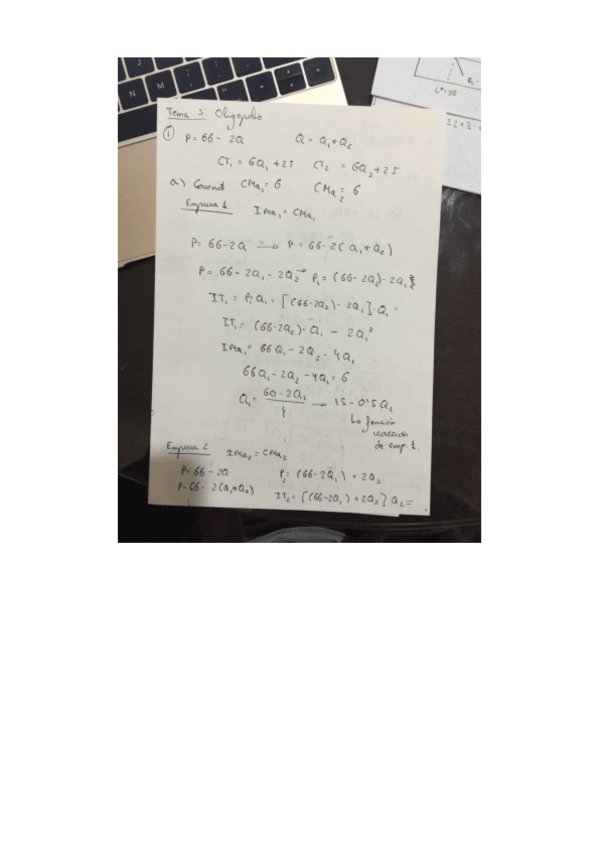 Tema 5: Oligopolio
① P = 66 - 2Q Q = Q₁ + Q₂
CT₁ = 6Q₁ + 25 CT₂ = 6Q₂ + 25
a) Cournot CMa₁ = 6 CMa₂ = 6
Empresa 1 IMa₁ = CMa₁
P = 66 - 2Q → P = 66 - 2(Q₁ + Q₂)
P = 66 - 2Q₁ - 2Q₂ → P₁ = (66 - 2Q₂) - 2Q₁
IT₁ = P₁ · Q₁ = [(66 - 2Q₂) - 2Q₁] · Q₁ =
IT₁ = (66 - 2Q₂) · Q₁ - 2Q₁²
IMa₁ = 66Q₁ - 2Q₂ - 4Q₁
66Q₁ - 2Q₂ - 4Q₁ = 6
60 - 2Q₂ → 15 - 0'5Q₂
La función
reacción
de emp. 1.
Empresa 2 IMa₂ = CMa₂
P = 66 - 2Q P₂ = (66 - 2Q₁) + 2Q₂
P = 66 - 2(Q₁ + Q₂) IT₂ = [(66 - 2Q₁) + 2Q₂] Q₂ =
N M
22 + 3